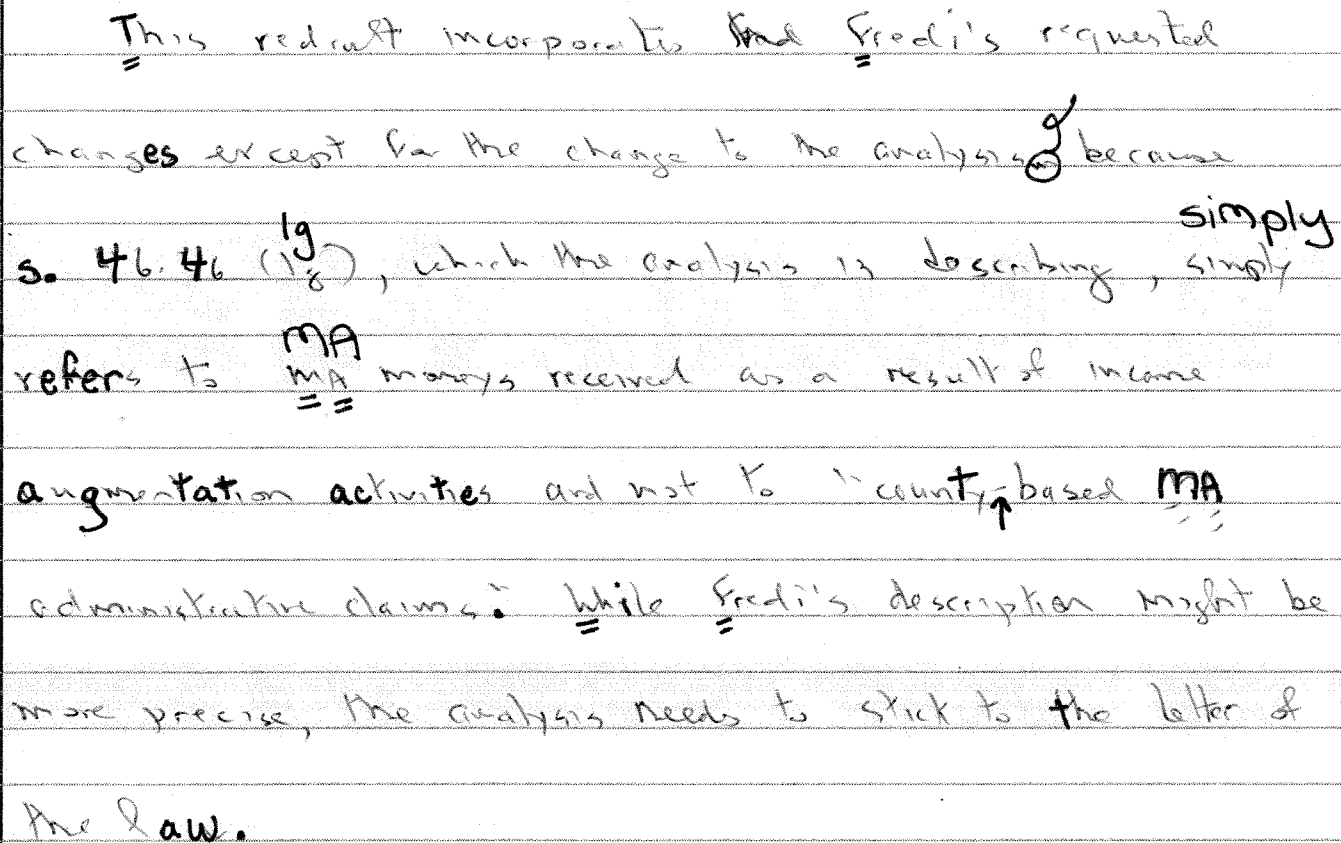 This redraft incorporates Fredi's requested
changes except for the change to the analysis because
simply
1g
s. 46.46 (1g), which the analysis is describing, simply
MA
refers to MA moneys received as a result of income
augmentation activities and not to "county-based MA
administrative claims." While Fredi's description might be
more precise, the analysis needs to stick to the letter of
the law.